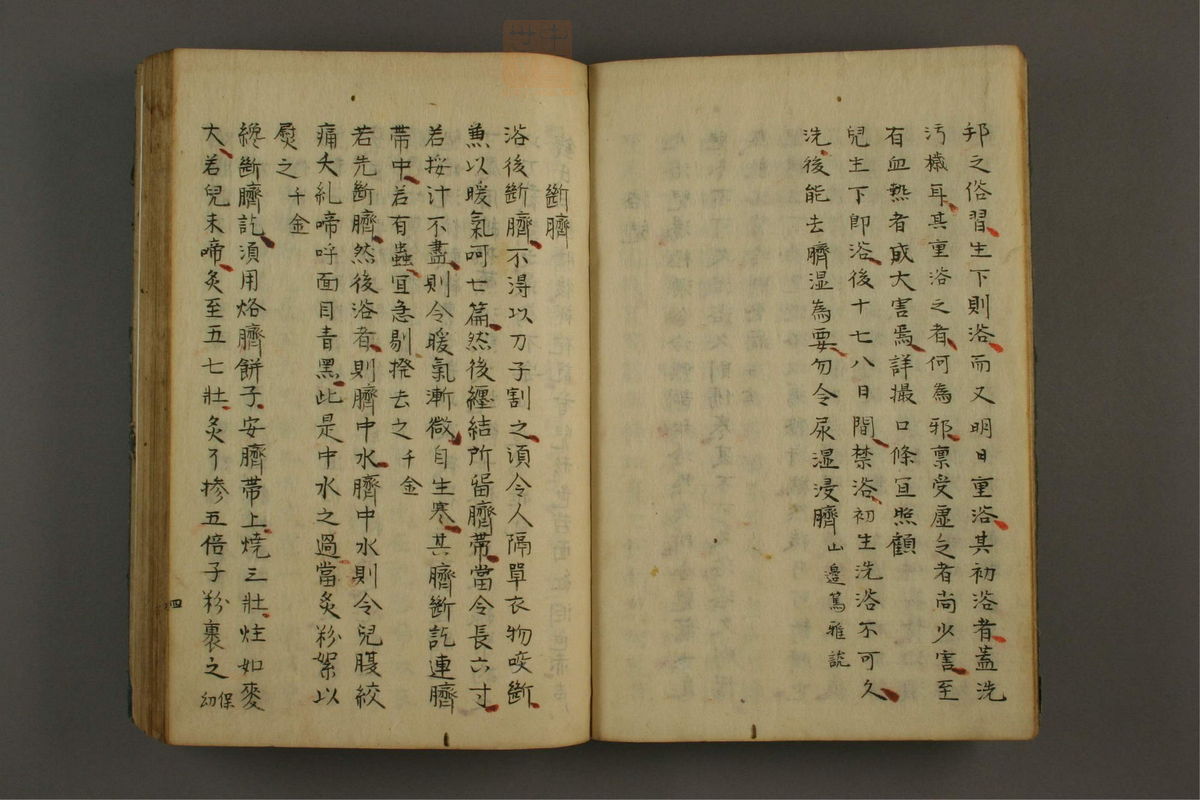 邦之俗習生下則浴而又明日重浴其初浴者蓋洗
汚穢耳其重浴之者何為邪稟受虛乏者尚少害至
有血熱者成大害焉詳撮口條宜照顧
兒生下即浴後十七八日間禁浴初生洗浴不可久
洗後能去臍湿為要勿令尿湿浸臍山邉篤雅説
斷臍
浴後斷臍不得以刀子割之須令人隔單衣物咬斷
兼以暖氣呵七篇然後纏結所留臍帯當令長六寸
若挼汁不盡則令暖氣漸微自生寒其臍斷訖連臍
帯中若有蟲宜急剔撥去之千金
若先斷臍然後浴者則臍中水臍中水則令兒腹絞
痛大糺啼呼面目青黑此是中水之過當灸粉絮以
熨之千金
纔斷臍訖須用烙臍餅子安臍帯上燒三壯炷如麥
大若兒未啼灸至五七壯灸了摻五倍子粉裹之保幼
四